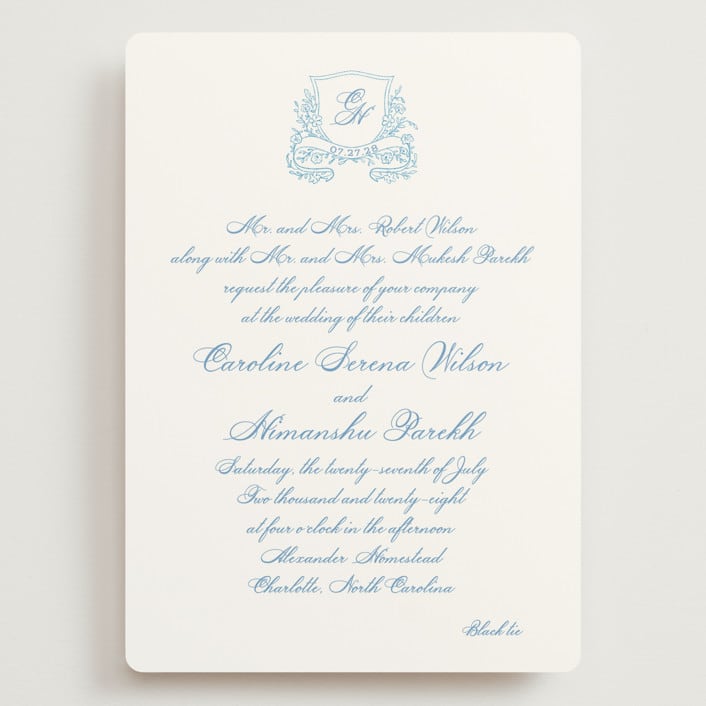 CH
07.27.28
Mr. and Mrs. Robert Wilson
along with Mr. and Mrs. Mukesh Parekh
request the pleasure of your company
at the wedding of their children
Caroline Serena Wilson
and
Himanshu Parekh
Saturday, the twenty-seventh of July
Two thousand and twenty-eight
at four o'clock in the afternoon
Alexander Homestead
Charlotte, North Carolina
Black tie